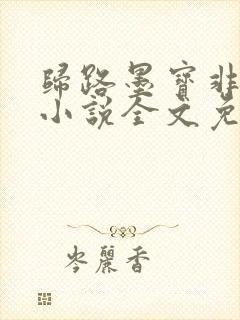 歸路墨寶非
小說全文免
岑麗香